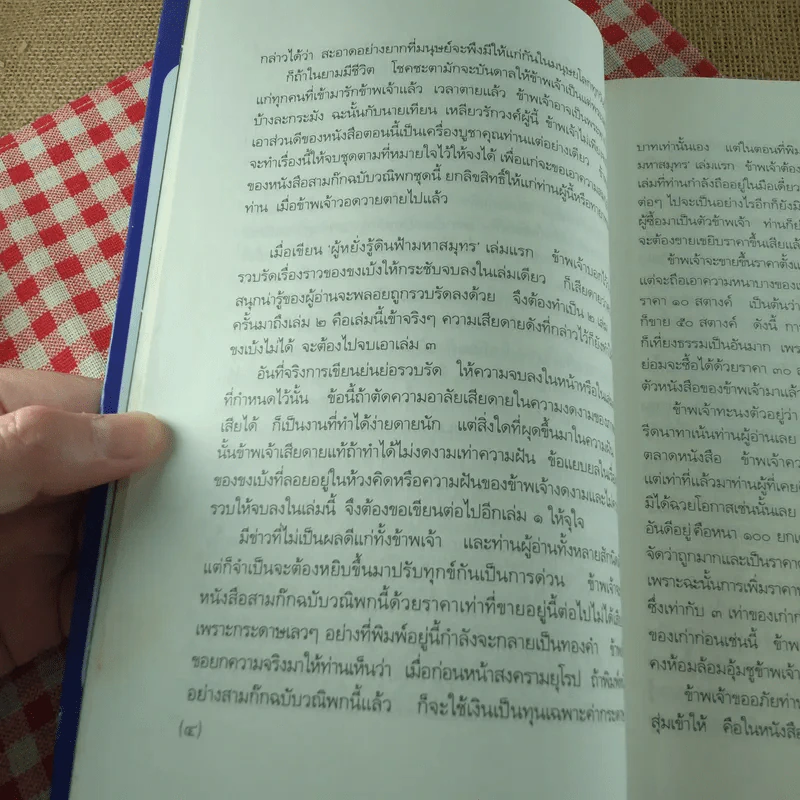 กล่าวได้ว่า สะอาดอย่างยากที่มนุษย์จะพึงมีให้แก่กันในมนุษย์โลก
ก็ถ้าในยามมีชีวิต โชคชะตามักจะบันดาลให้ข้าพเจ้าเป็นแต่
แก่ทุกคนที่เข้ามารักข้าพเจ้าแล้ว เวลาตายแล้ว ข้าพเจ้าอาจเป็น
บ้างละกระมัง ฉะนั้นกับนายเทียน เหลียวรักวงศ์ผู้นี้ ข้าพเจ้าไม่เพียง
เอาส่วนดีของหนังสือตอนนี้เป็นเครื่องบูชาคุณท่านแต่อย่างเดียว
จะทำเรื่องนี้ให้จบชุดตามที่หมายใจไว้ให้จงได้ เพื่อแก่จะขอเอาความ
ของหนังสือสามก๊กฉบับวณิพกชุดนี้ ยกลิขสิทธิ์ให้แก่ท่านผู้นี้หรือ
ท่าน เมื่อข้าพเจ้าวอดวายตายไปแล้ว
เมื่อเขียน ‘ผู้หยั่งรู้ดินฟ้ามหาสมุทร’ เล่มแรก ข้าพเจ้าบอกไว้
รวบรัดเรื่องราวของขงเบ้งให้กระชับจบลงในเล่มเดียว ก็เสียดายว่า
สนุกน่ารู้ของผู้อ่านจะพลอยถูกรวบรัดลงด้วย จึงต้องทำเป็น ๒ เล่ม
ครั้นมาถึงเล่ม ๒ คือเล่มนี้เข้าจริงๆ ความเสียดายดังที่กล่าวไว้ก็ยัง
ขงเบ้งไม่ได้ จะต้องไปจบเอาเล่ม ๓
อันที่จริงการเขียนย่นย่อรวบรัด ให้ความจบลงในหน้าหรือในเล่ม
ที่กำหนดไว้นั้น ข้อนี้ถ้าตัดความอาลัยเสียดายในความงดงามของ
เสียได้ ก็เป็นงานที่ทำได้ง่ายดายนัก แต่สิ่งใดที่ผุดขึ้นมาในความฝัน
นั้นข้าพเจ้าเสียดายแท้ถ้าทำได้ไม่งดงามเท่าความฝัน ข้อแยบยล
ของขงเบ้งที่ลอยอยู่ในห้วงคิดหรือความฝันของข้าพเจ้างดงามและ
รวบให้จบลงในเล่มนี้ จึงต้องขอเขียนต่อไปอีกเล่ม ๑ ให้จุใจ
มีข่าวที่ไม่เป็นผลดีแก่ทั้งข้าพเจ้า และท่านผู้อ่านทั้งหลายสักนิด
แต่ก็จำเป็นจะต้องหยิบขึ้นมาปรับทุกข์กันเป็นการด่วน ข้าพเจ้า
หนังสือสามก๊กฉบับวณิพกนี้ด้วยราคาเท่าที่ขายอยู่นี้ต่อไปไม่ได้
เพราะกระดาษเลวๆ อย่างที่พิมพ์อยู่นี้กำลังจะกลายเป็นทองคำ
ขอยกความจริงมาให้ท่านเห็นว่า เมื่อก่อนหน้าสงครามยุโรป ถ้าพิมพ์
อย่างสามก๊กฉบับวณิพกนี้แล้ว ก็จะใช้เงินเป็นทุนเฉพาะค่ากระดาษ
(๔)
บาทเท่านั้นเอง แต่ในตอนที่พิม
มหาสมุทร’ เล่มแรก ข้าพเจ้าต้อง
เล่มที่ท่านกำลังถืออยู่ในมือเดี๋ยว
ต่อๆ ไปจะเป็นอย่างไรอีกก็ยังมิ
ผู้ซื้อมาเป็นตัวข้าพเจ้า ท่านก็ย
จะต้องขายเขยิบราคาขึ้นเสียแล้
ข้าพเจ้าจะขายขึ้นราคาตั้งแ
แต่จะถือเอาความหนาบางของเ
ราคา ๑๐ สตางค์ เป็นต้นว่า
ก็ขาย ๕๐ สตางค์ ดังนี้ กา
ก็เที่ยงธรรมเป็นอันมาก เพร
ย่อมจะซื้อได้ด้วยราคา ๓๐ ส
ตัวหนังสือของข้าพเจ้ามาแล้
ข้าพเจ้าทะนงตัวอยู่ว่า
รีดนาทาเน้นท่านผู้อ่านเลย
ตลาดหนังสือ ข้าพเจ้าคว
แต่เท่าที่แล้วมาท่านผู้ที่เคยติ
มิได้ฉวยโอกาสเช่นนั้นเลย
อันดีอยู่ คือหนา ๑๐๐ ยกเ
จัดว่าถูกมากและเป็นราคาต
เพราะฉะนั้นการเพิ่มราคาห
ซึ่งเท่ากับ ๓ เท่าของเก่าก่อ
ของเก่าก่อนเช่นนี้ ข้าพ
คงห้อมล้อมอุ้มชูข้าพเจ้า
ข้าพเจ้าขออภัยท่า
สุ่มเข้าให้ คือในหนังสือ